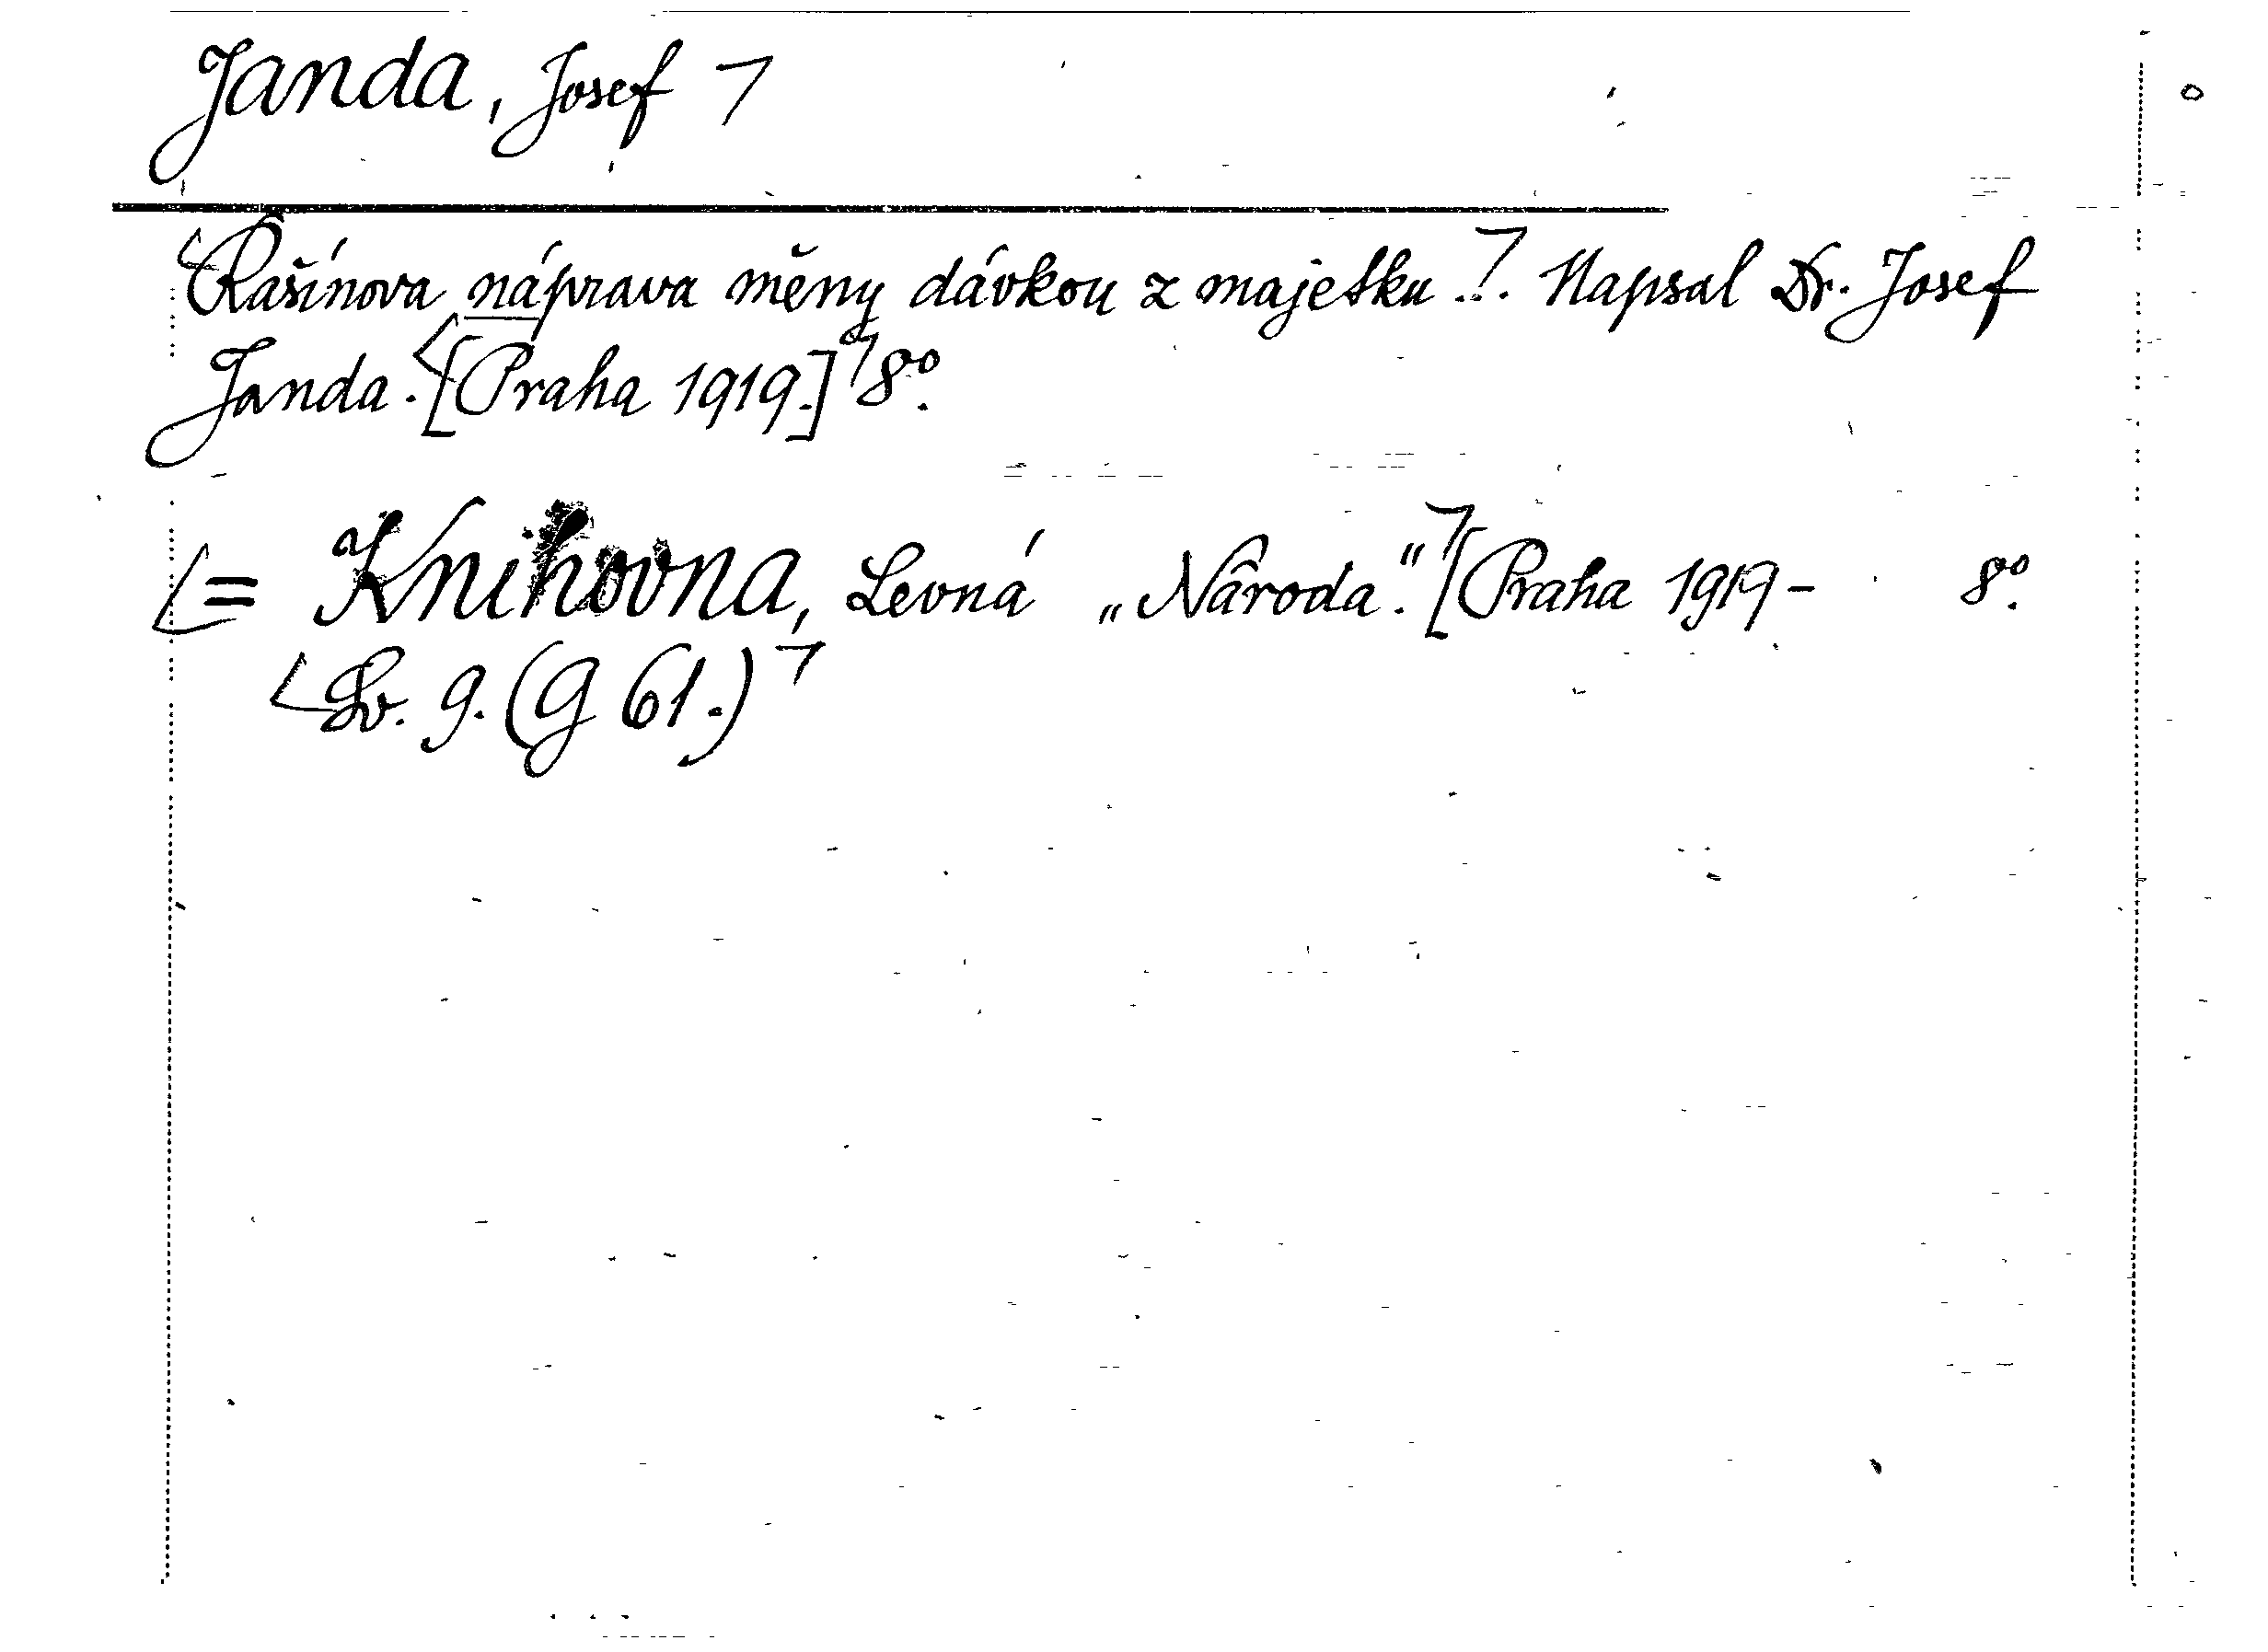 Janda, Josef
Rašínova náprava měny dávkou z majetku... Napsal Dr. Josef
Janda. [Praha 1919.] 8°.
= Knihovna, Levná „Národa“. [Praha 1919- 8°.
Sv. 9. (G 61.)